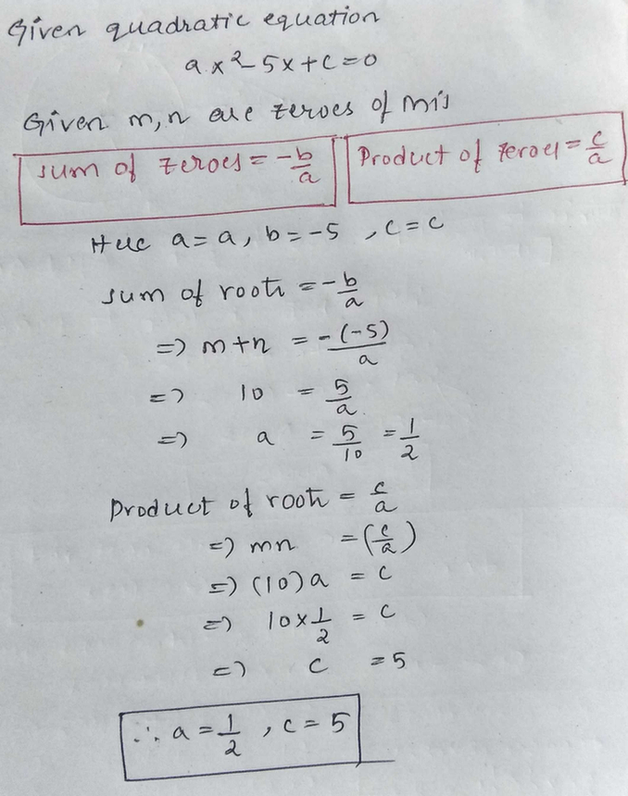 Given quadratic equation
ax²-5x+c=0
Given m,n are zeroes of this
sum of zeroes = -b/a
Product of zeroes = c/a
Here a=a, b=-5, c=c
sum of roots = -b/a
=> m+n = -(-5)/a
=> 10 = 5/a
=> a = 5/10 = 1/2
Product of roots = c/a
=> mn = (c/a)
=> (10)a = c
=> 10×1/2 = c
=> c = 5
∴ a = 1/2, c = 5